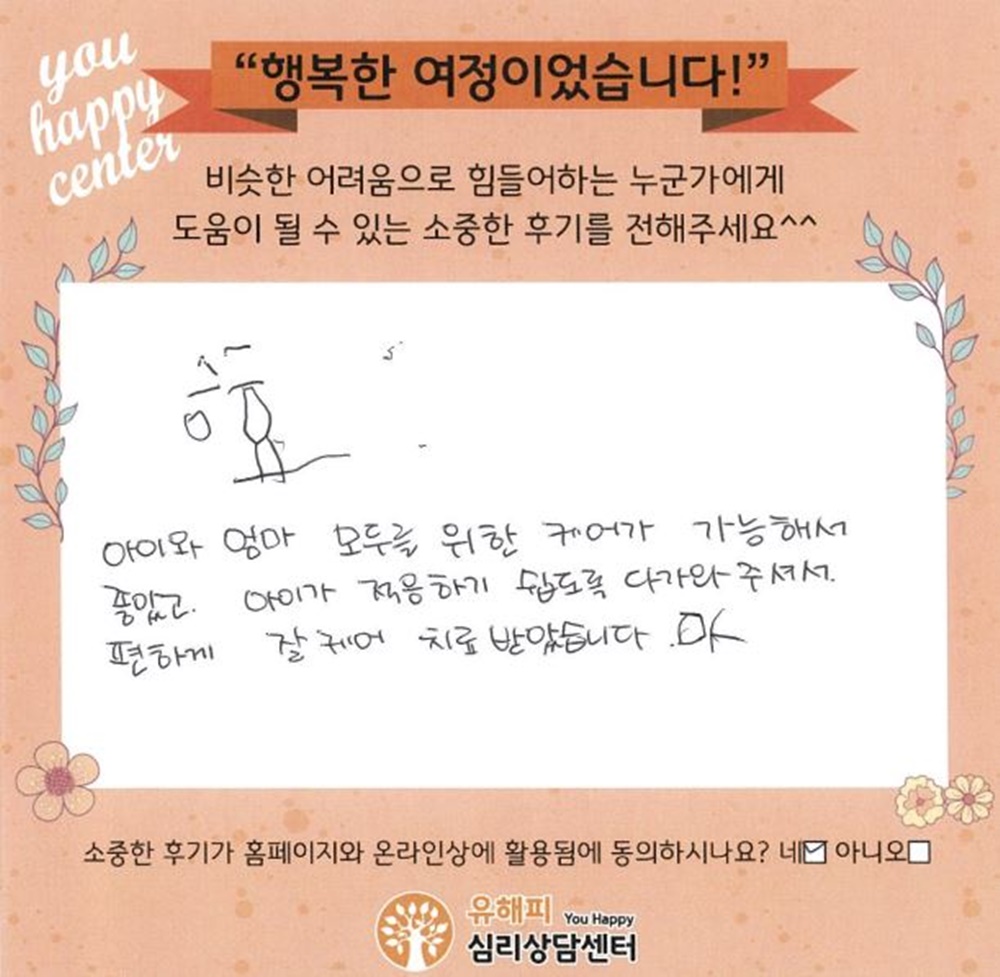 you
happy
center
“행복한 여정이었습니다!”
비슷한 어려움으로 힘들어하는 누군가에게
도움이 될 수 있는 소중한 후기를 전해주세요^^
아이와 엄마 모두를 위한 케어가 가능해서
좋았고. 아이가 적응하기 쉽도록 다가와 주셔서.
편하게 잘 케어 치료 받았습니다.
소중한 후기가 홈페이지와 온라인상에 활용됨에 동의하시나요? 네 아니오
유해피 You Happy
심리상담센터